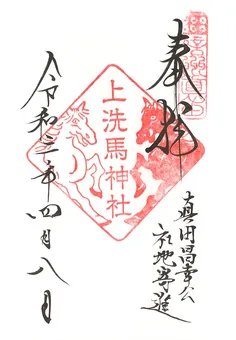 奉拝
上洗馬神社
真田昌幸公
社地寄進
令和三年四月八日